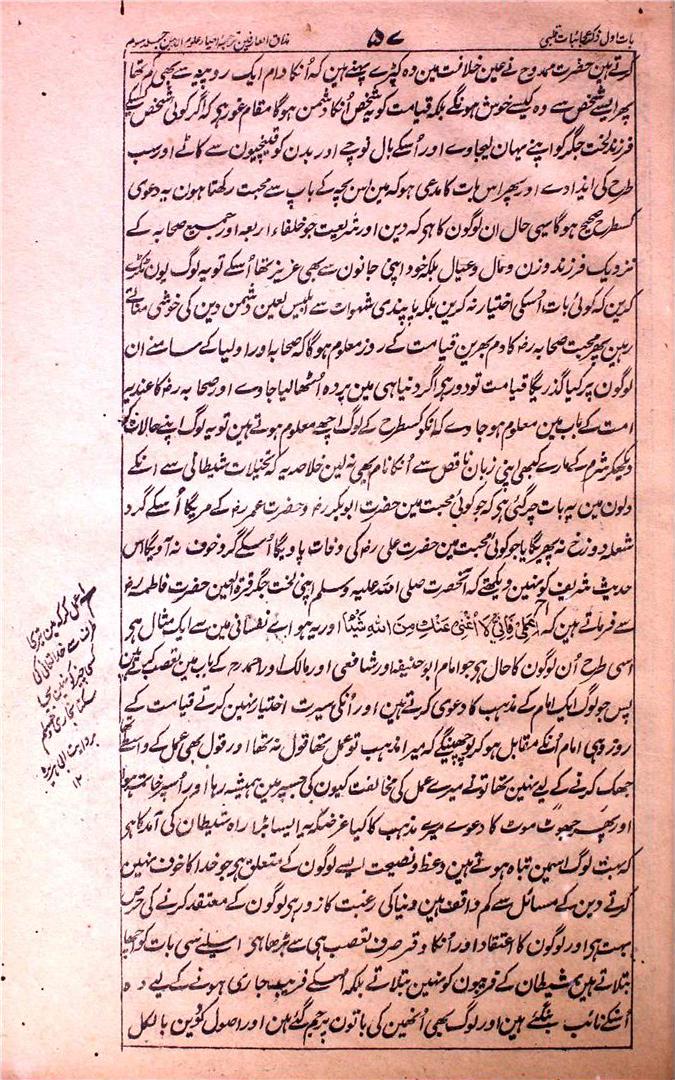 باب اول ذکر عجائبات قلبی
۵۷
مذاق العارفین ترجمہ احیاء علوم الدین جلد سوم
کرتے ہین حضرت ممدوح نے عین خلافت مین وہ کپڑے پہنے ہین کہ اُنکا دام ایک روپیہ سے بھی کم تھا
پھر ایسے شخص سے وہ کیسے خوش ہونگے بلکہ قیامت کو یہ شخص اُنکا دشمن ہوگا مقام غور ہی کہ اگر کوئی شخص کسیکے
فرزند لخت جگر کو اپنے یہان لیجاوے اور اُسکے بال نوچے اور بدن کو قینچیون سے کاٹے اور سب
طرح کی ایذا دے اور پھر اس بات کا مدعی ہو کہ مین اس بچہ کے باپ سے محبت رکھتا ہون یہ دعوی
کسطرح صحیح ہوگا یہی حال ان لوگون کا ہی کہ دین اور شریعت جو خلفاء اربعہ اور جمیع صحابہ کے
نزدیک فرزند و زن و مال و عیال بلکہ خود اپنی جانون سے بھی عزیز تھا اُسکے تو یہ لوگ یون ٹکڑے
کرین کہ کوئی بات اُسکی اختیار نہ کرین بلکہ پابندی شہوات سے ابلیس لعین دشمن دین کی خوشی مناتے
رہین پھر محبت صحابہ رضہ کا دم بھرین قیامت کے روز معلوم ہوگا کہ صحابہ اور اولیا کے سامنے ان
لوگون پر کیا گذریگا قیامت تو دور ہی اگر دنیا ہی مین پردہ اُٹھا لیا جاوے اور صحابہ رضہ کا عندیہ
امت کے باب مین معلوم ہو جاوے کہ انکو کسطرح کے لوگ اچھے معلوم ہوتے ہین تو یہ لوگ اپنے حالات کو
دیکھکر شرم کے مارے کبھی اپنی زبان ناقص سے اُنکا نام بھی نہ لین خلاصہ یہ کہ تخیلات شیطانی سے انکے
دلون مین یہ بات جم گئی ہی کہ جو کوئی محبت مین حضرت ابوبکر رضہ و حضرت عمر رضہ کے مریگا اُسکے گرد
شعلہ دوزخ نہ پھریگا یا جو کوئی محبت مین حضرت علی رضہ کی وفات پاویگا اُسکے گرد خوف نہ آویگا اس
حدیث شریف کو نہین دیکھتے کہ آنحضرت صلی اللہ علیہ وسلم اپنی لخت جگر قرۃ العین حضرت فاطمہ رضہ
سے فرماتے ہین کہ اِعْمَلِیْ فَاِنِّیْ لَا اُغْنِیْ عَنْكِ مِنَ اللّٰہِ شَیْئًا اور یہ ہواے نفسانی مین سے ایک مثال ہی
اسی طرح اُن لوگون کا حال ہی جو امام ابوحنیفہ اور شافعی اور مالک اور احمد رحہ کے باب مین تعصب کرتے ہین
پس جو لوگ ایک امام کے مذہب کا دعوی کرتے ہین اور اُنکی سیرت اختیار نہین کرتے قیامت کے
روز وہی امام اُنکے مقابل ہو کر پوچھینگے کہ میرا مذہب تو عمل تھا قول نہ تھا اور قول بھی عمل کے واسطے تھا
جھک کرنے کے لیے نہین تھا تونے میرے عمل کی مخالفت کیون کی جسپر مین ہمیشہ رہا اور اُسپر خاتمہ ہوا
اور پھر جھوٹ موٹ کا دعوے میرے مذہب کا کیا غرضکہ یہ ایسا بڑا راہ شیطان کی آمد کا ہی
کہ بہت لوگ اسمین تباہ ہوتے ہین وعظ و نصیحت ایسے لوگون کے متعلق ہی جو خدا کا خوف نہین
کرتے دین کے مسائل سے کم واقف ہین دنیا کی رغبت کا زور ہی لوگون کے معتقد کرنے کی حرص
بہت ہی اور لوگون کا اعتقاد اور اُنکا وقر صرف تعصب ہی سے بڑھتا ہی اسیلیے اسی بات کو اچھا
بتلاتے ہین شیطان کے فریبون کو نہین بتلاتے بلکہ اُسکے فریب جاری ہونے کے لیے وہ
اُسکے نائب بنگئے ہین اور لوگ بھی اُنھین کی باتون پر جم گئے ہین اور اصول دین بالکل
عمل کر کہ مین تیری
طرف سے خدا تعالی کی
کسی چیز کو نہین بچا
سکتا بخاری و مسلم
بروایت ابی ہریرہ
۱۲